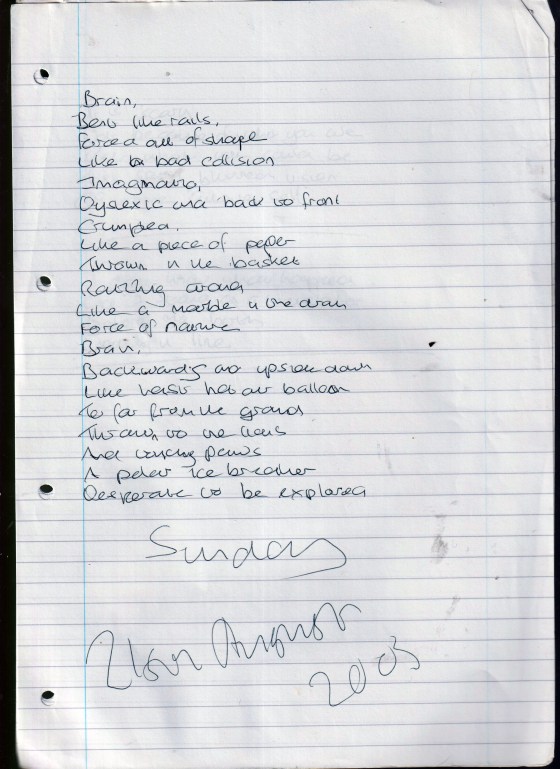 Brain,
Bent like rails,
Forced out of shape
Like in bad collision
Imaginairo,
Dyslexic and back to front
Crumpled,
Like a piece of paper
Thrown in the basket
Rattling around
Like a marble in the drain
Force of nature
Brain,
Backwards and upside down
Like hot air balloon
To far from the ground
Thrown to the lions
And wanting pawns
A polar ice breaker
Desperate to be explored
Sunday
21st August
2005